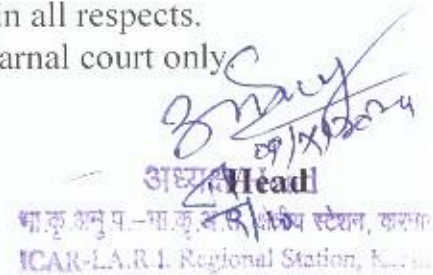 in all respects.
arnal court only
09/X/2024
अध्यक्ष Head
भा.कृ.अनु.प.–भा.कृ.अ.सं. क्षेत्रीय स्टेशन,
ICAR-I.A.R.I. Regional Station,